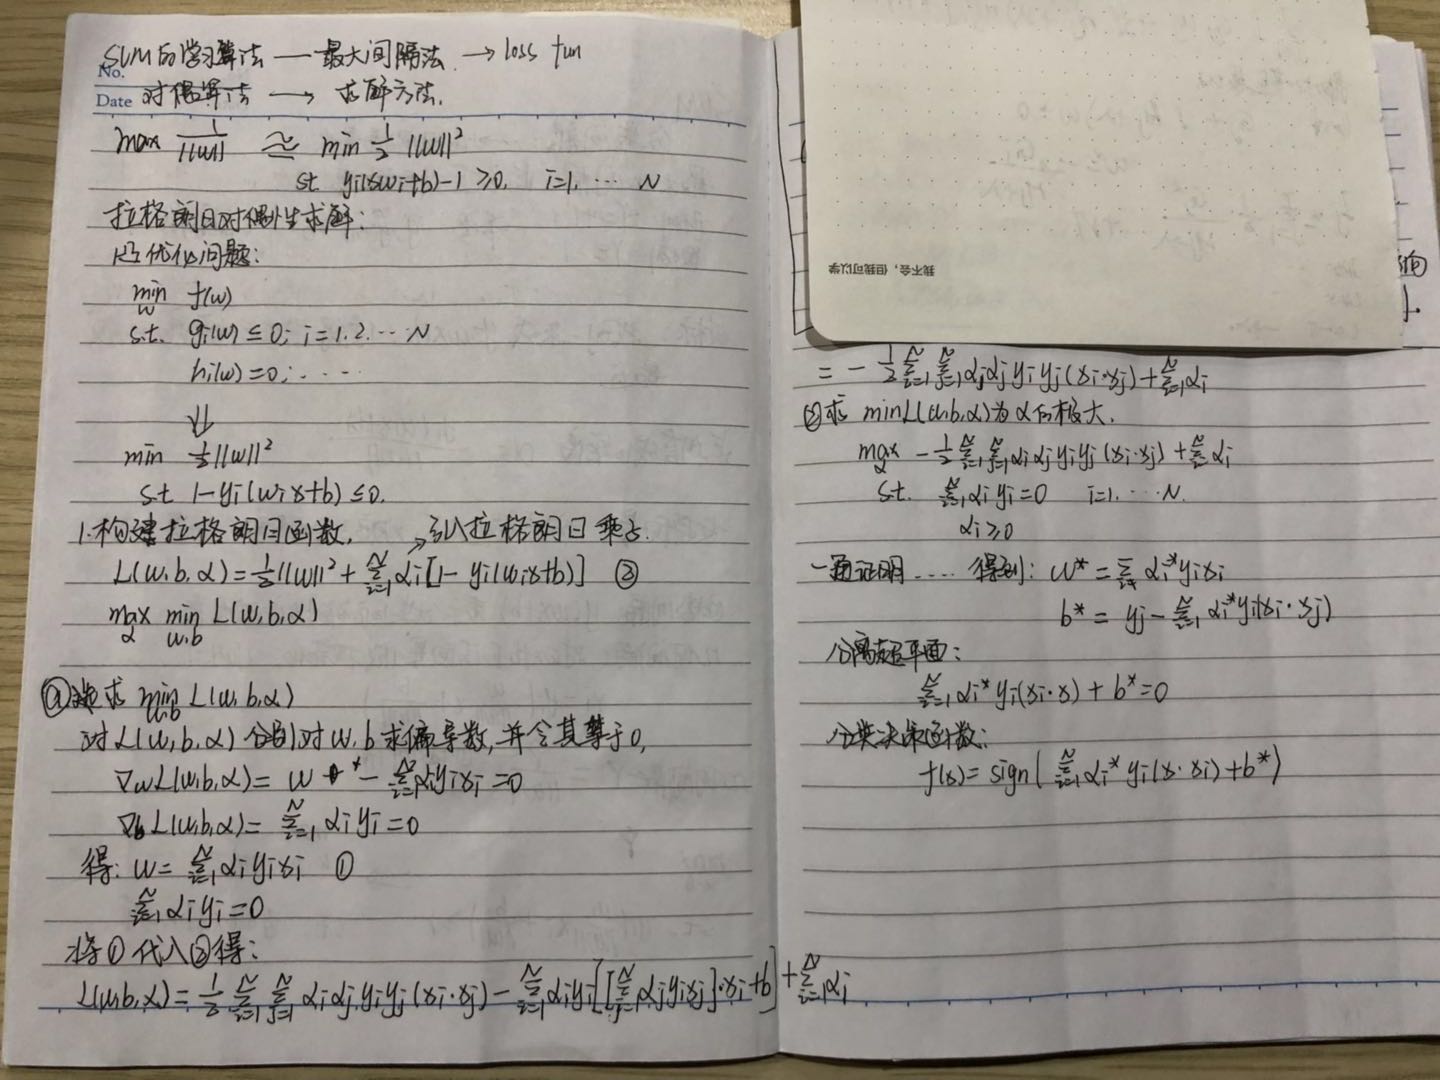 SVM的学习算法 — 最大间隔法 → loss fun
No.
Date 对偶算法 → 求解方法.
max 1/||w|| ≃ min 1/2 ||w||²
st yi(xwi+b)-1 ≥0, i=1, ⋯ N
拉格朗日对偶性求解:
优化问题:
min w f(w)
s.t. gi(w) ≤ 0; i=1.2.⋯N
hi(w)=0; ⋯
⇓
min 1/2||w||²
s.t 1-yi(wi x+b) ≤0.
1.构建拉格朗日函数, →引入拉格朗日乘子.
L(w.b,α)=1/2||w||² + Σ_{i=1}^N αi[1- yi(wix+b)] ②
max α min w,b L(w,b,α)
①求 min w,b L(w,b,α)
对L(w,b,α)分别对w,b求偏导数,并令其等于0,
∇wL(w,b,α)= w - Σ_{i=1}^N αiyixi=0
∇bL(w,b,α)= Σ_{i=1}^N αi yi=0
得: w= Σ_{i=1}^N αi yi xi ①
Σ_{i=1}^N αi yi=0
将①代入②得:
L(w,b,α)= 1/2 Σ_{i=1}^N Σ_{j=1}^N αi αj yi yj (xi·xj) - Σ_{i=1}^N αi yi[[Σ_{j=1}^N αj yi xj]·xi+b] + Σ_{i=1}^N αi
我不会，但我可以学
= - 1/2 Σ_{i=1}^N Σ_{j=1}^N αi αj yi yj (xi·xj)+ Σ_{i=1}^N αi
②求 minL(w,b,α)为α的极大.
max α - 1/2 Σ_{i=1}^N Σ_{j=1}^N αi αj yi yj (xi·xj) + Σ_{i=1}^N αi
s.t. Σ_{i=1}^N αi yi=0 i=1.⋯N.
αi ≥0
一通证明 ..... 得到: w* = Σ αi* yi xi
b* = yj - Σ_{i=1}^N αi* yi(xi·xj)
分离超平面:
Σ_{i=1}^N αi* yi(xi·x) + b* =0
分类决策函数:
f(x)= sign( Σ_{i=1}^N αi* yi(x·xi) +b*)